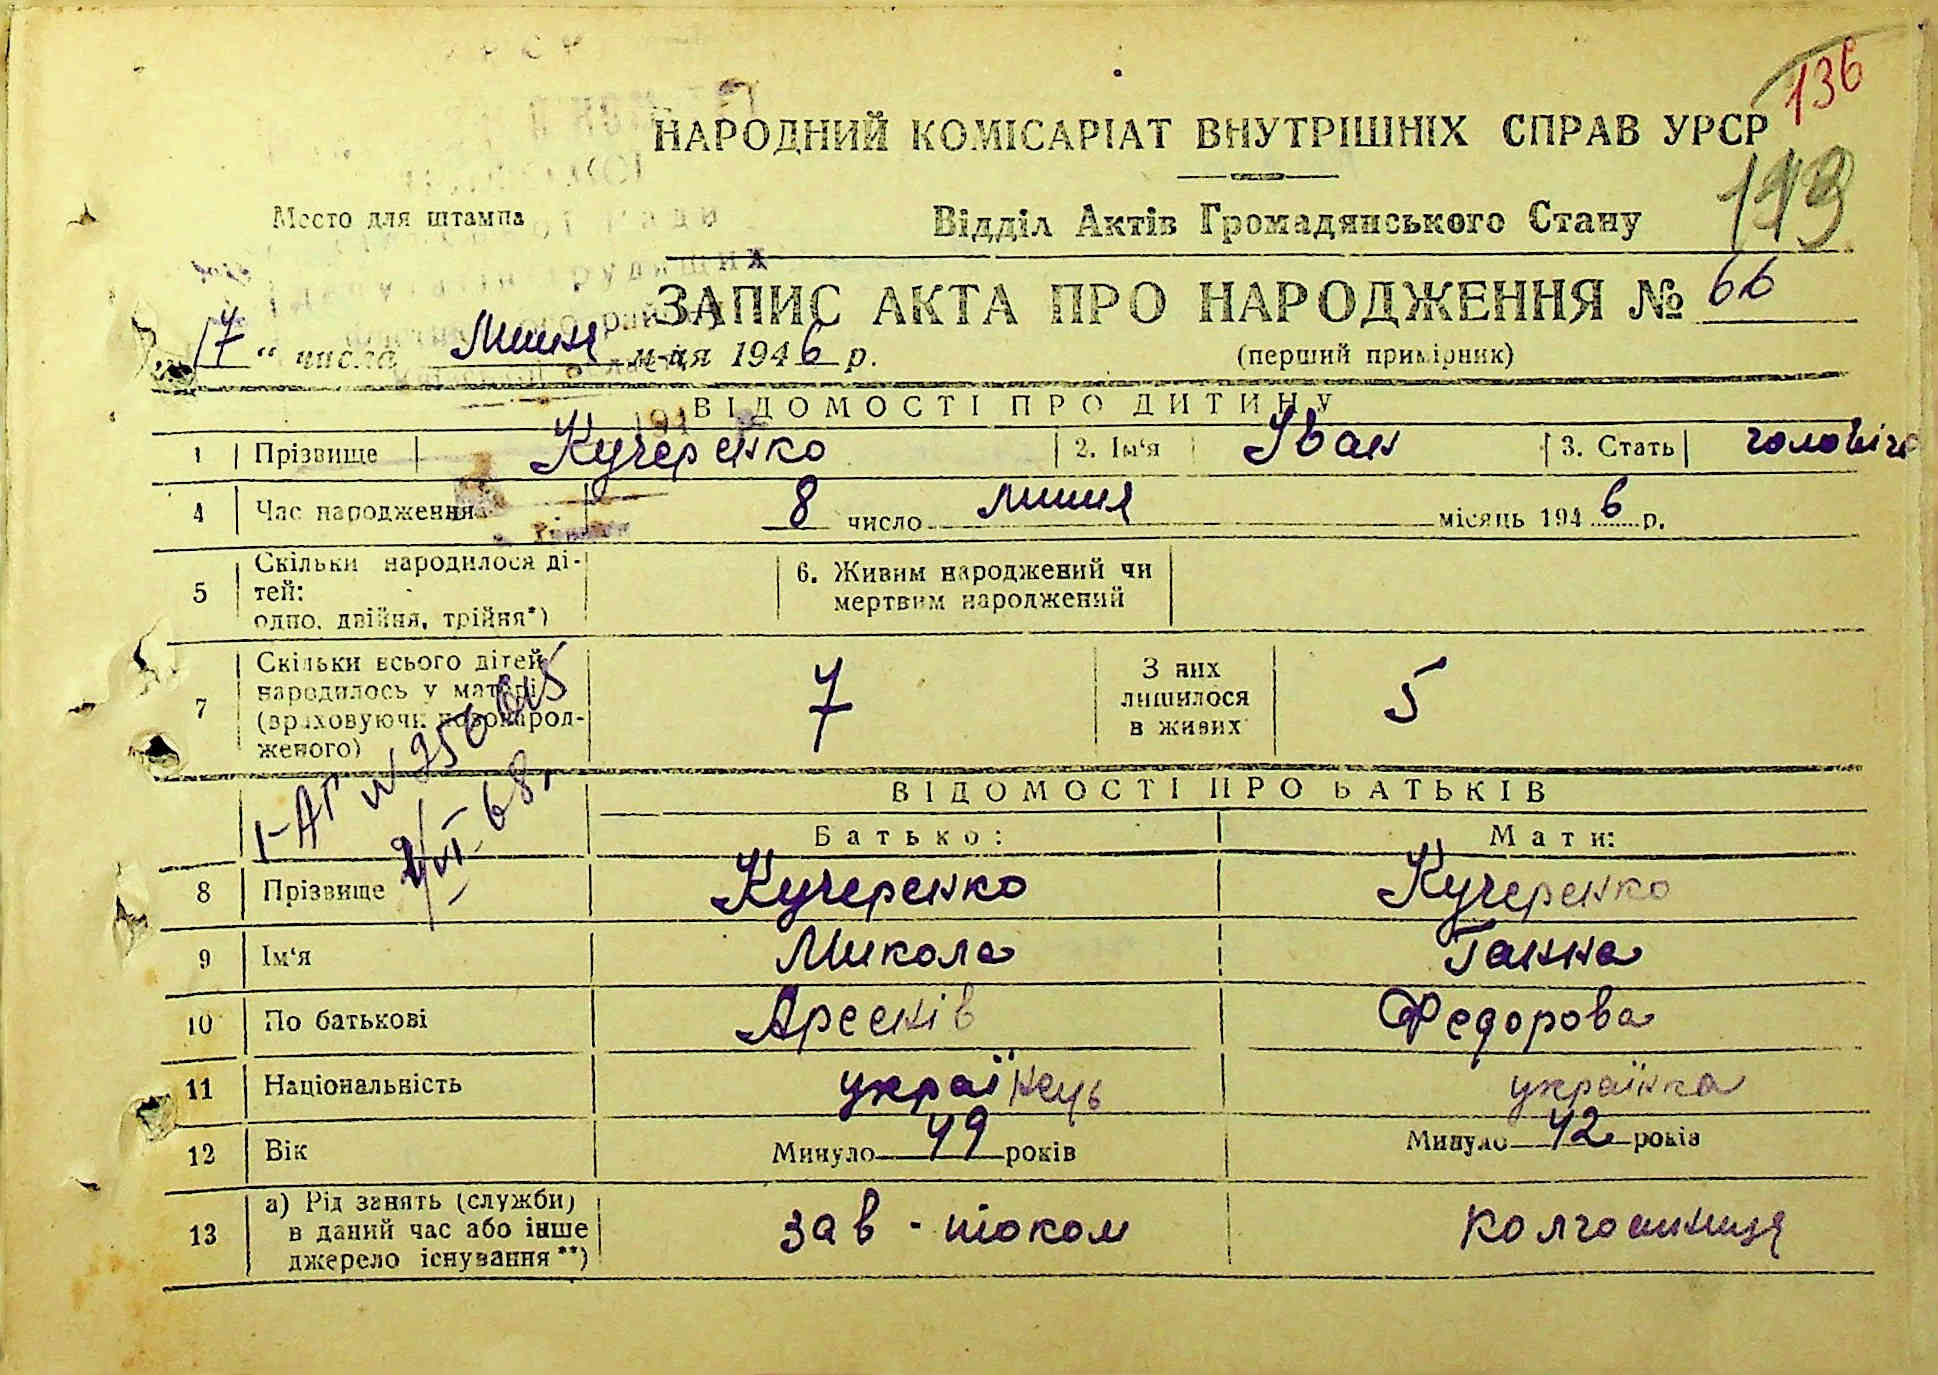 136
НАРОДНИЙ КОМІСАРІАТ ВНУТРІШНІХ СПРАВ УРСР
193
Место для штампа
Відділ Актів Громадянського Стану
ЗАПИС АКТА ПРО НАРОДЖЕННЯ № 66
„17“ числа липня м-ця 1946 р.
(перший примірник)
ВІДОМОСТІ ПРО ДИТИНУ
1 Прізвище Кучеренко 2. Ім'я Іван 3. Стать
4 Час народження 8 число липня місяць 1946 р.
5 Скільки народилося ді-
тей:
одно, двійня, трійня*)
6. Живим народжений чи
мертвим народжений
7 Скільки всього дітей
народилось у матері
(враховуючи новонарод-
женого)
7
З них
лишилося
в живих
5
ВІДОМОСТІ ПРО БАТЬКІВ
Батько: Мати:
8 Прізвище Кучеренко Кучеренко
9 Ім'я Микола Ганна
10 По батькові Арсенів Федорова
11 Національність українець українка
12 Вік Минуло 49 років Минуло 42 років
13 а) Рід занять (служби)
в даний час або інше
джерело існування**)
зав-током колгоспниця